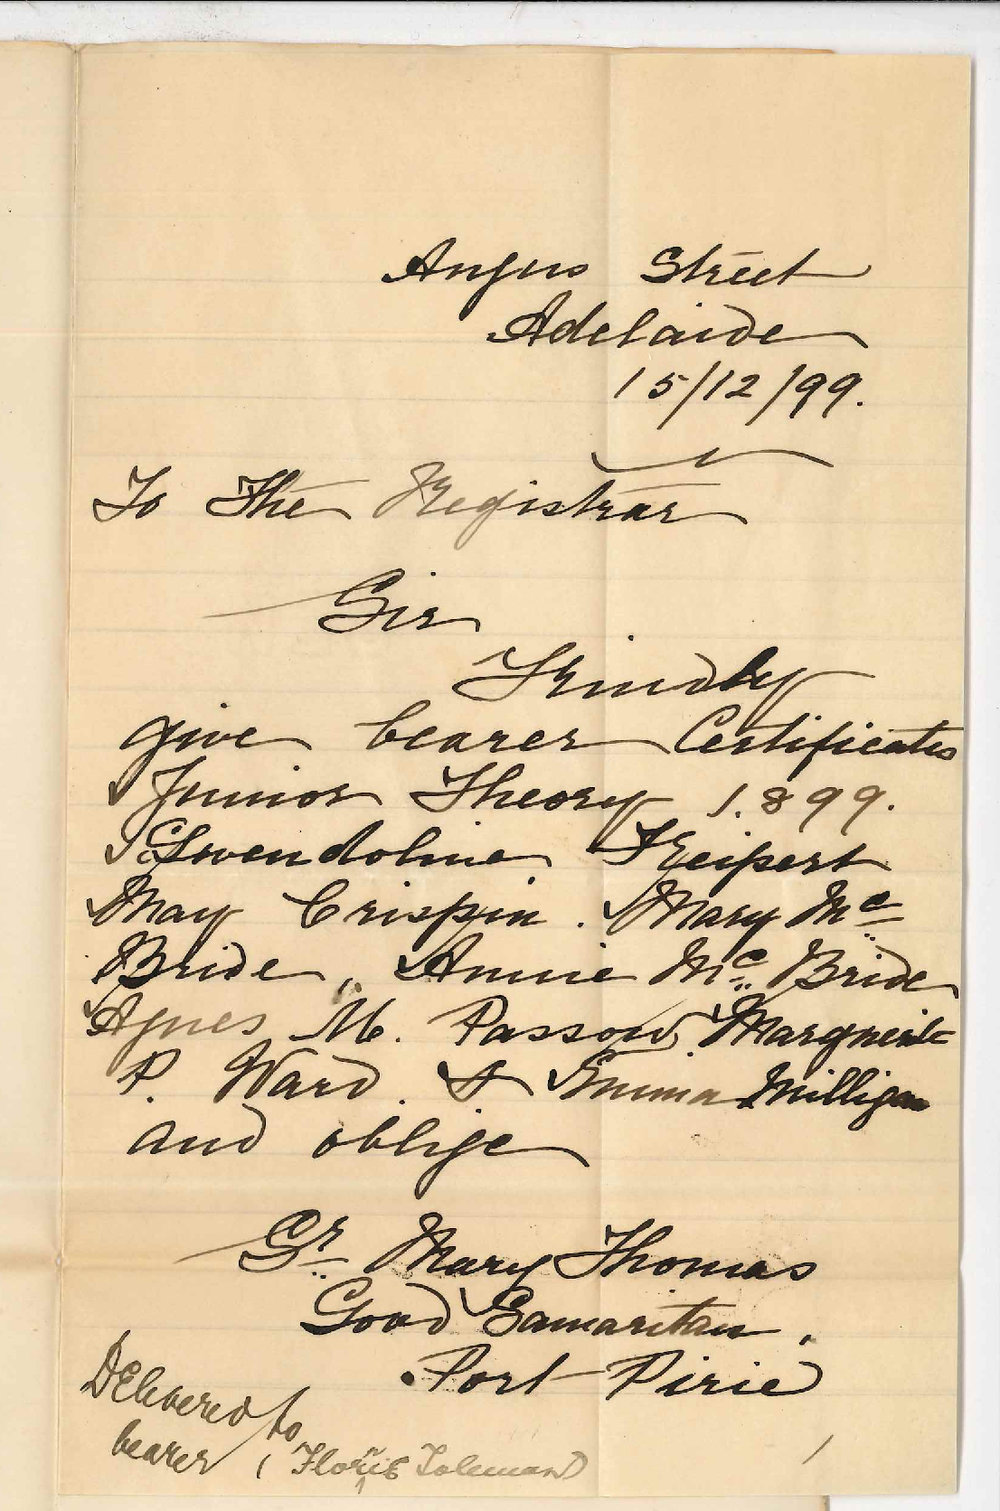 Angus Street
Adelaide
15/12/99.
To The Registrar
Sir
Kindly
give bearer Certificates
Junior Theory 1.899.
Gwendoline Keipert
May Crispin. Mary Mc
Bride, Annie Mc Bride
Agnes M. Passow, Marguerite
P. Ward. & Emma Milligan
and oblige
Sr Mary Thomas
Good Samaritan,
Port Pirie
Delivered to
bearer (